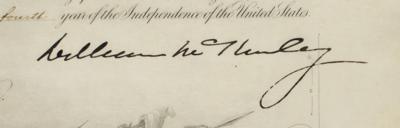 fourth year of the Independence of the United States.
William McKinley